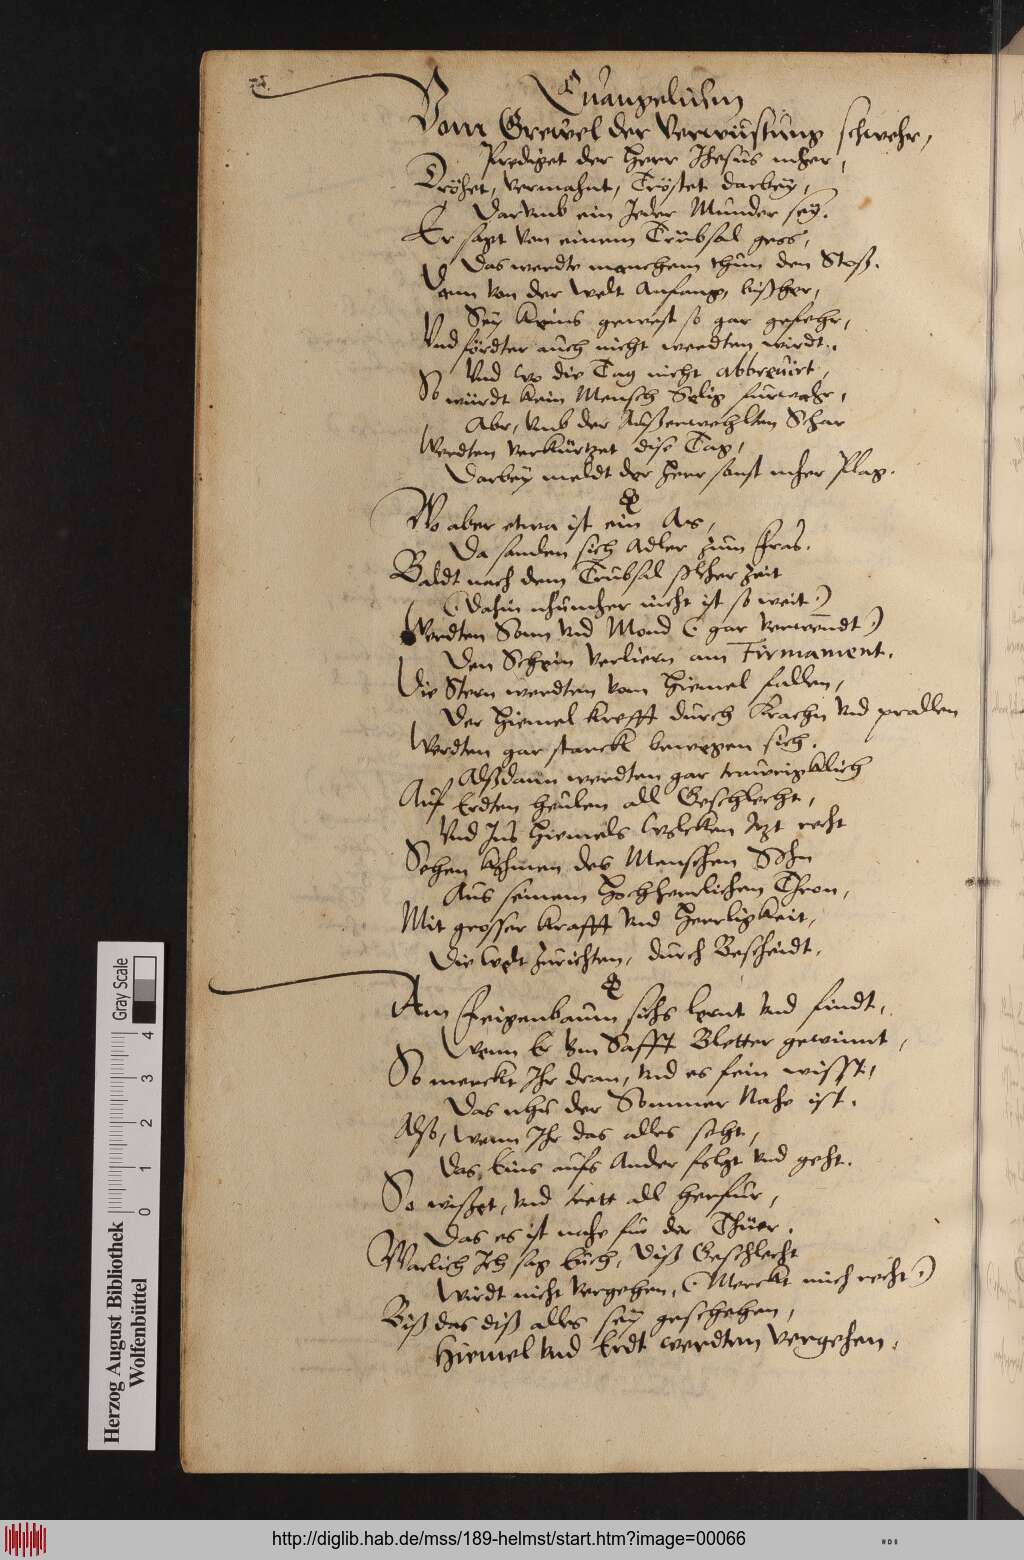 Euangelium
Vom Grewel der Verwüstung schwehr,
Prediget der Herr Jhesus mher,
Dröhet, vermahnt, Tröstet darbey,
Darumb ein Jeder Munder sey.
Er sagt von einem Trübsal gros,
Das werdte manchem thun den Stoß.
Dann von der Welt Anfang, bißher,
Sey keins gewest so gar gefehr,
Vnd fördter auch nicht werdten wirdt.
Vnd wo die Tag nicht abbreuirt,
So würdt kein Mensch Selig fürwahr,
Abr, vmb der Außerwehlten Schar
Werdten verkürtzet dise Tag,
Darbey meldt der Herr sonst mher Plag.
Wo aber etwa ist ein Aas,
Da samlen sich Adler zum Fras.
Baldt nach dem Trübsal solcher Zeit
(Dahin nhumher nicht ist so weit.)
Werdten Sonn vnd Mond (gar verwendt.)
Den Schein verliern am Firmament.
Die Stern werdten vom Hiemel fallen,
Der Hiemel krefft durch krachn vnd prallen
Werdten gar starckl bewegen sich.
Alßdann werdten gar trawrigklich
Auf Erdten heulen all Geschlecht,
Vnd Jns Hiemels Wolcken Jtzt recht
Sehen kohmen des Menschen Sohn
Aus seinem hochherrlichen Thron,
Mit grosser krafft vnd Herrligkeit,
Die Welt zurichten, durch Bescheidt.
Am Feigenbaum sichs lernt vnd findt,
Wenn Er vm Safft Bletter gewinnt,
So merckt Jhr dran, vnd es fein wisst,
Das nhu der Sommer Nahe ist.
Also, wenn Jhr das alles seht,
Das Eins aufs Ander folgt vnd geht.
So wißet, vnd trett all herfur,
Das es ist nahe für der Thüer.
Warlich Jch sag Euch, diß Geschlecht
Wirdt nicht vergehen, (Merckt mich recht.)
Biß das diß alles sey geschehen,
Hiemel vnd Erdt werdten vergehen.
Herzog August Bibliothek
Wolfenbüttel
0 1 2 3 4
Gray Scale
http://diglib.hab.de/mss/189-helmst/start.htm?image=00066